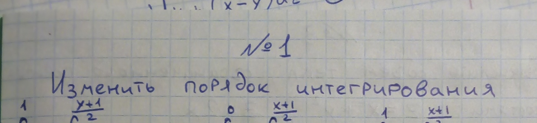 (x-y)
№1
Изменить порядок интегрирования
1 y+1 0 x+1 1 x+1
2 2